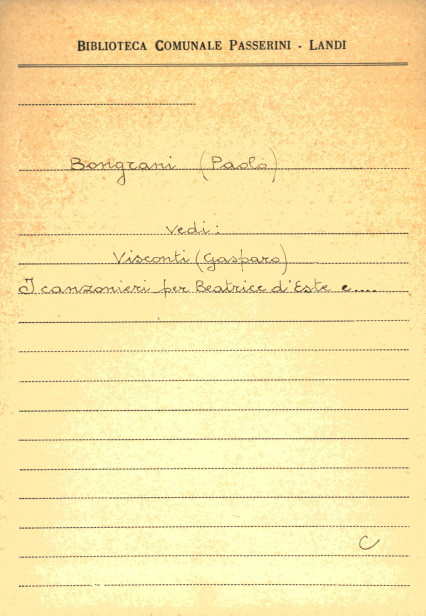 BIBLIOTECA COMUNALE PASSERINI - LANDI
Bongrani (Paolo)
Vedi:
Visconti (Gasparo)
I canzonieri per Beatrice d'Este e....
C